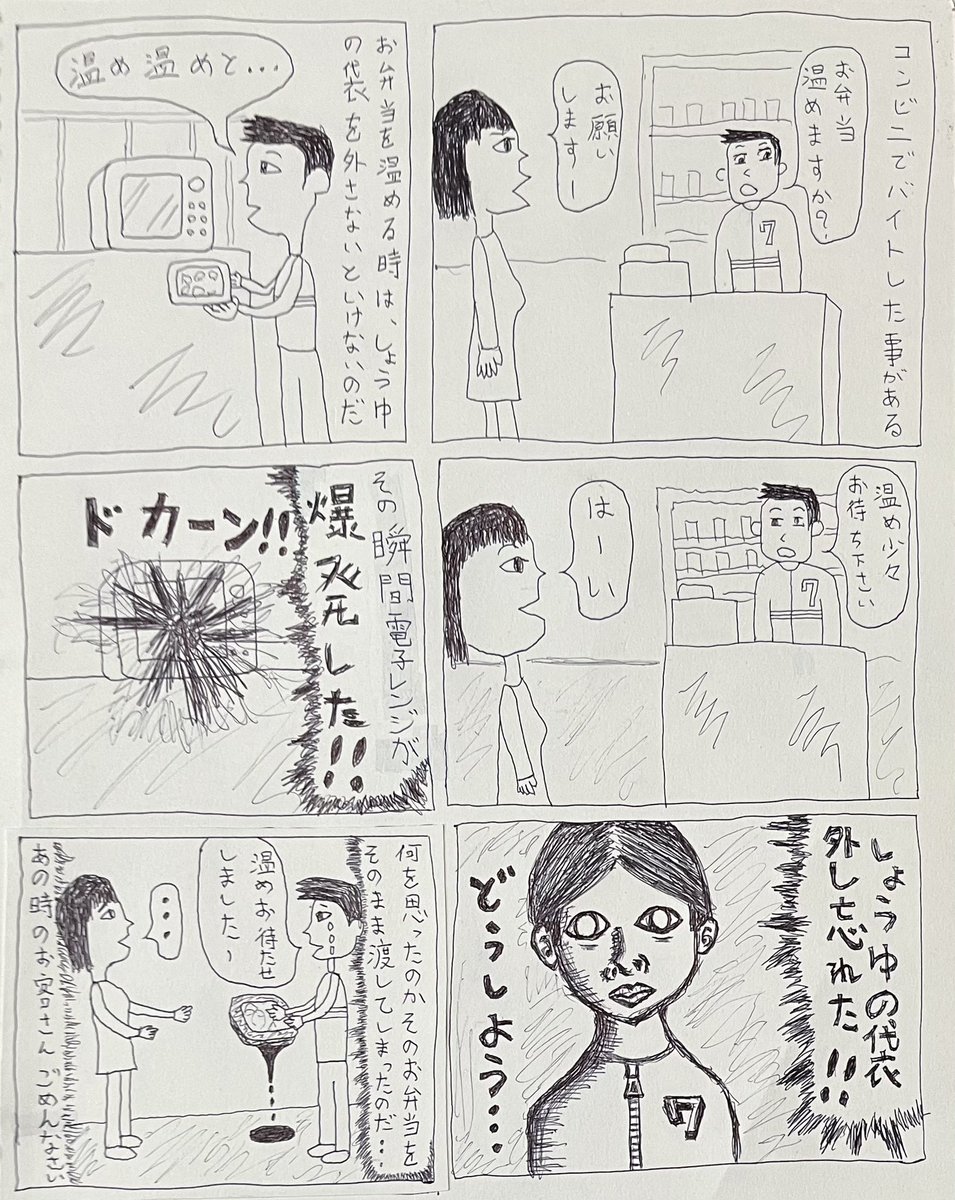 コンビニでバイトした事がある
お弁当
温めますか?
お願い
しますー
7
お弁当を温める時は、しょうゆ
の袋を外さないといけないのだ
温め温めと...
温め少々
お待ち下さい
はーい
7
その瞬間電子レンジが
爆発した!!
ドカーン!!
しょうゆの袋
外し忘れた!!
どうしよう....
7
何を思ったのかそのお弁当を
そのまま渡してしまったのだ...
温めお待たせ
しました〜
...
あの時のお客さんごめんなさい